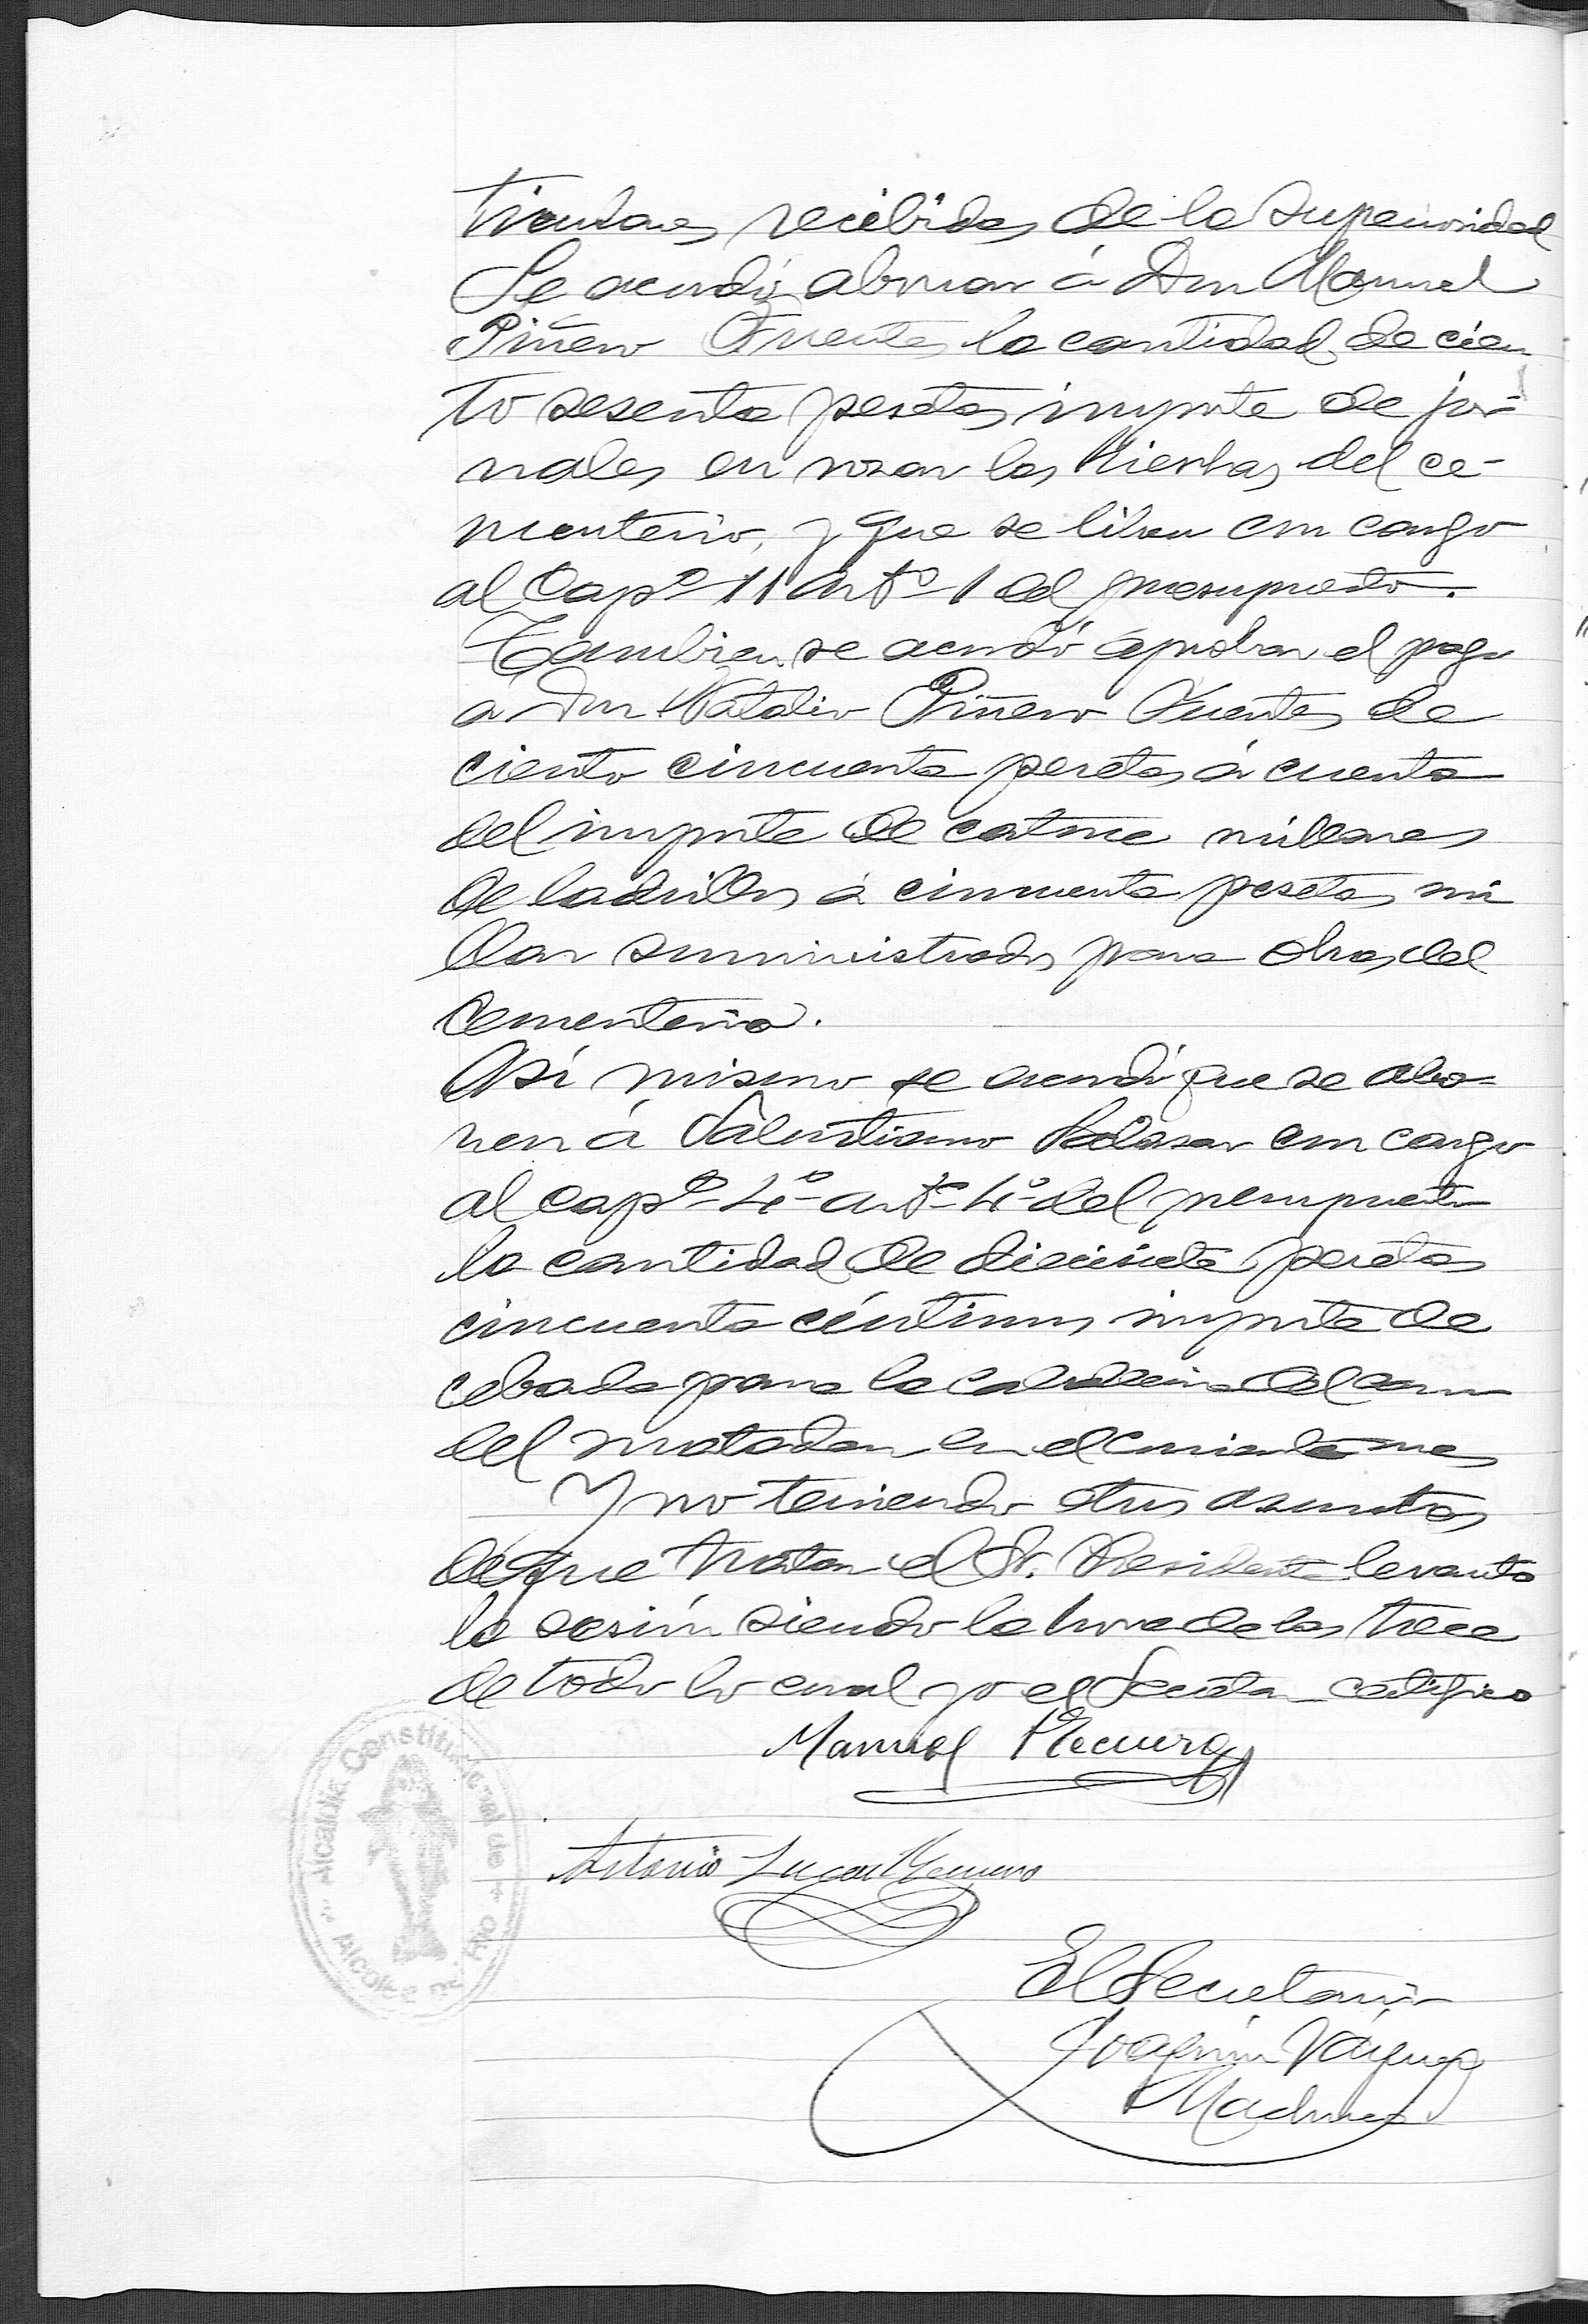 recibidas de la Superioridad
Se acordó abonar á Don Manuel
Piñero Fuentes la cantidad de cien
to sesenta pesetas importe de jor-
nales en rozar las hierbas del ce-
menterio, y que se libren con cargo
al Capº 11 artº 1 del presupuesto.
Tambien se acordó aprobar el pago
a Don Natalio Piñero Fuentes de
ciento cincuenta pesetas á cuenta
del importe de catorce millares
de ladrillos á cincuenta pesetas mi
llar suministrados para obras del
Cementerio.
Así mismo se acordó que se abo-
nen á Valentiano con cargo
al capº 4º artº 4º del presupuesto
la cantidad de diecisiete pesetas
cincuenta céntimos importe de
cebada para la caballeria del carro
del matadero en el corriente mes
Y no teniendo otros asuntos
de que tratar el Sr. Presidente levanto
la sesión siendo la hora de las trece
de todo lo cual yo el Secretario certifico
Manuel Recuero
Antonio Lucas Recuero
El Secretario
Joaquin Vázquez
Alcaldia Constitucional de